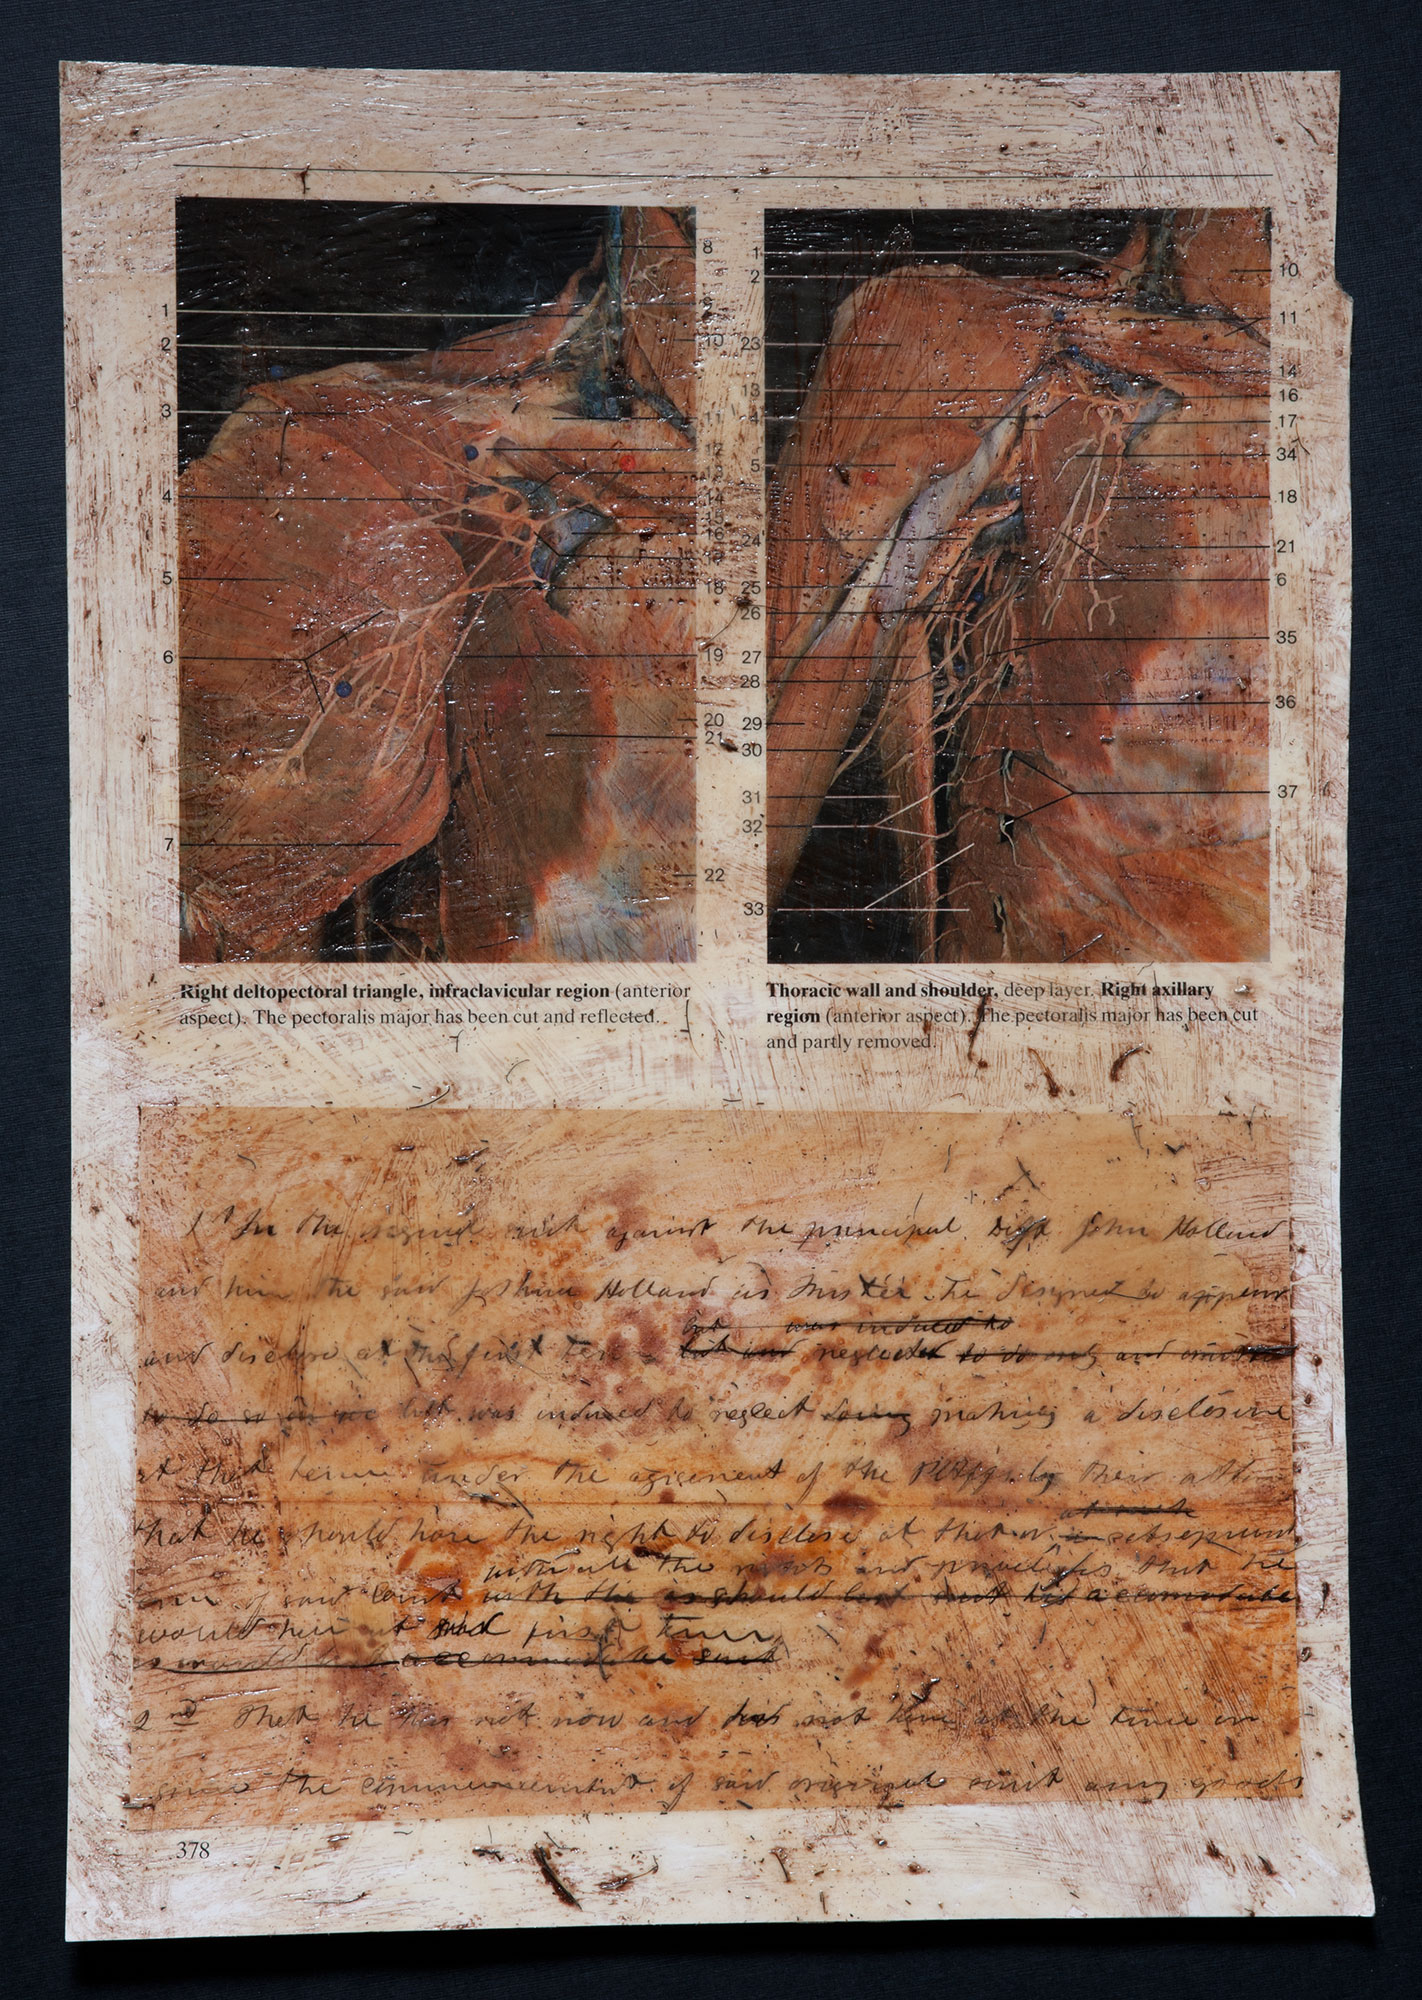 1
2
3
4
5
6
7
8
10
11
12
14
18
19
20
21
22
1
2
23
13
5
24
25
26
27
28
29
30
31
32
33
10
11
14
16
17
34
18
21
6
35
36
37
Right deltopectoral triangle, infraclavicular region (anterior
aspect). The pectoralis major has been cut and reflected.
Thoracic wall and shoulder, deep layer. Right axillary
region (anterior aspect). The pectoralis major has been cut
and partly removed.
1st In the original suit against the principal Deft John Holland
and him the said Joshua Holland as Trustee. He designed to appear
and disclose at the first term
but was induced to
but and neglected to do so and omitted
to do so but was induced to neglect doing making a disclosure
at that term under the agreement of the Plffs by their
that he should have the right to disclose at that or a subsequent
with all the rights and privileges that he
term of said court with the as should best suit his accomodation
would have at said first term
as would accommodate suit
2nd That he has not now and has not had at the time or
since the commencement of said original suit any goods
378